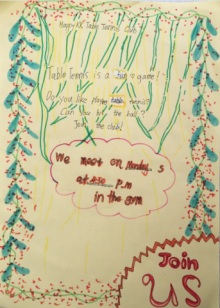 Happy KK Table Tennis Club
Table Tennis is a fun game!
Do you like playing table tennis?
Can you hit the ball?
Join the club!
We meet on Monday s
at P.m
in the gym
Join
US